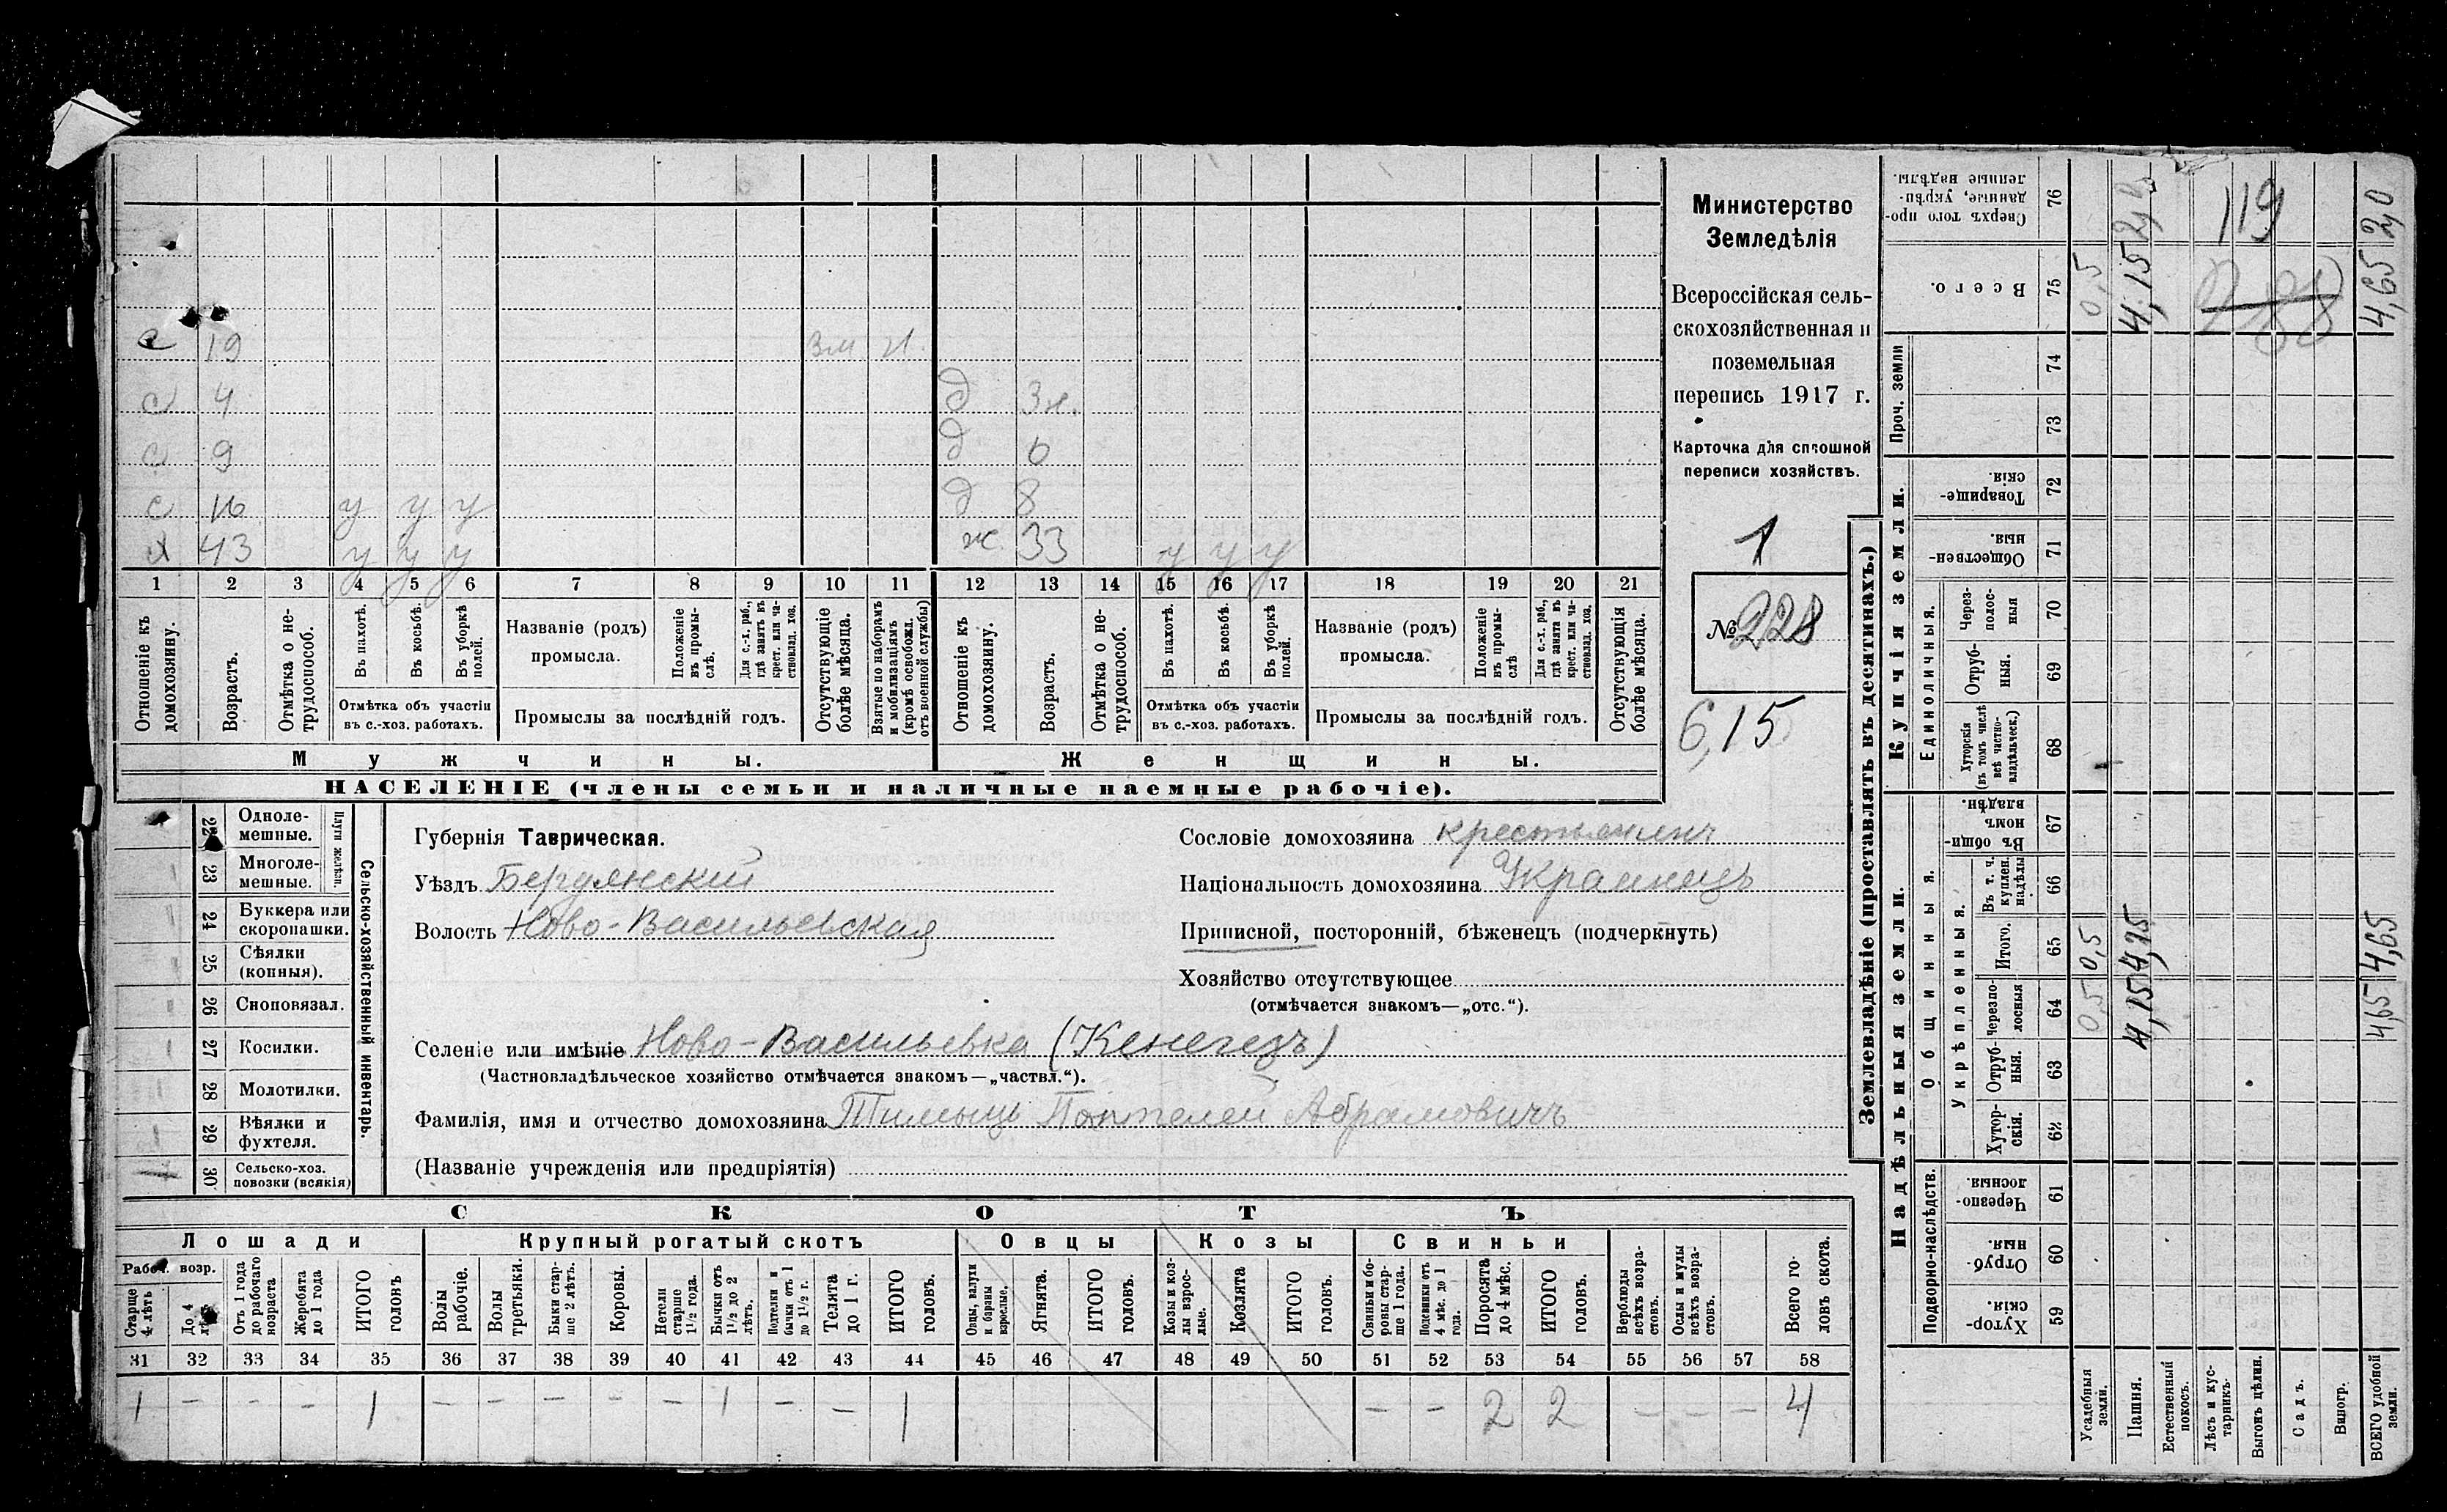 с 19 зм
с 4 д 3 н.
с 9 д 6
с 16 у у у д 8
х 43 у у у ж 33 у у у
1 2 3 4 5 6 7 8 9 10 11 12 13 14 15 16 17 18 19 20 21
Отношеніе къ домохозяину.
Возрастъ.
Отмѣтка о не-трудоспособ.
Въ пахотѣ.
Въ косьбѣ.
Въ уборкѣ полей.
Отмѣтка объ участіи
въ с.-хоз. работахъ.
Названіе (родъ)
промысла.
Положеніе въ промы-слѣ.
Для с.-х. раб., гдѣ занятъ въ крест. или ча-стновлад. хоз.
Промыслы за послѣдній годъ.
Отсутствующіе болѣе мѣсяца.
Взятые по наборамъ и мобилизаціямъ (кромѣ освобожд. отъ военной службы)
Отношеніе къ домохозяину.
Возрастъ.
Отмѣтка о не-трудоспособ.
Въ пахотѣ.
Въ косьбѣ.
Въ уборкѣ полей.
Отмѣтка объ участіи
въ с.-хоз. работахъ.
Названіе (родъ)
промысла.
Положеніе въ промы-слѣ
Для с.-х. раб., гдѣ занята въ крест. или ча-стновлад. хоз.
Промыслы за послѣдній годъ.
Отсутствующія болѣе мѣсяца.
Мужчины. Женщины.
НАСЕЛЕНІЕ (члены семьи и наличные наемные рабочіе).
Министерство
Земледѣлія
Всероссійская сель-
скохозяйственная и
поземельная
перепись 1917 г.
Карточка для сплошной
переписи хозяйствъ.
1
№ 228
6,15
22 Одноле-мешные.
23 Многоле-мешные.
Плуги желѣзн.
24 Буккера или скоропашки.
25 Сѣялки (конныя).
26 Сноповязал.
27 Косилки.
28 Молотилки.
29 Вѣялки и фухтеля.
30 Сельско-хоз. повозки (всякія)
1
Сельско-хозяйственный инвентарь.
Губернія Таврическая.
Уѣздъ Бердянский
Волость Ново-Васильевская
Сословіе домохозяина крестьянинъ
Національность домохозяина Украинецъ
Приписной, посторонній, бѣженецъ (подчеркнуть)
Хозяйство отсутствующее
(отмѣчается знакомъ—„отс.“).
Селеніе или имѣніе Ново-Васильевка (Кенегезъ)
(Частновладѣльческое хозяйство отмѣчается знакомъ—„частвл.“).
Фамилія, имя и отчество домохозяина Пантелей Абрамовичъ
(Названіе учрежденія или предпріятія)
СКОТЪ
Лошади Крупный рогатый скотъ Овцы Козы Свиньи
Рабоч. возр.
Старше 4 лѣтъ
До 4 лѣтъ
Отъ 1 года до рабочаго возраста
Жеребята до 1 года
ИТОГО головъ
Волы рабочіе.
Волы третьяки.
Быки стар-ше 2 лѣтъ.
Коровы.
Нетели старше 1½ года.
Бычки отъ 1½ до 2 лѣтъ.
Нетелки и бычки отъ 1 до 1½ г.
Телята до 1 г.
ИТОГО головъ.
Овцы, валухи и бараны взрослые.
Ягнята.
ИТОГО головъ.
Козы и коз-лы взрос-лые.
Козлята
ИТОГО головъ.
Свиньи и бо-ровы стар-ше 1 года.
Подсвинки отъ 4 мѣс. до 1 года.
Поросята до 4 мѣс.
ИТОГО головъ.
Верблюды всѣхъ возра-стовъ.
Ослы и мулы всѣхъ возра-стовъ.
Всего го-ловъ скота.
31 32 33 34 35 36 37 38 39 40 41 42 43 44 45 46 47 48 49 50 51 52 53 54 55 56 57 58
1 – – – 1 – – – – – 1 – – 1 – – 2 2 – – – 4
Землевладѣніе (проставлять въ десятинахъ.)
Надѣльныя земли. Купчія земли.
Проч. земли
Подворно-наслѣдств.
Общинныя.
Укрѣпленныя.
Единоличныя.
Сверхъ того про-данные, укрѣп-ленные надѣлы. 76
Всего. 75
74
73
Товарище-скія 72
Обществен-ныя. 71
Через-полос-ныя 70
Отруб-ныя. 69
Хуторскія (въ томъ числѣ всѣ частно-владѣльческ.) 68
Въ общи-номъ владѣн. 67
Въ т. ч. куплен. надѣлы 66
Итого. 65
Черезпо-лосныя 64
Отруб-ныя. 63
Хутор-скія. 62
Черезпо-лосныя. 61
Отруб-ныя. 60
Хутор-скія. 59
Усадебныя земли. 0,5 0,5 0,5
Пашня. 4,15 4,15 4,15 2,0
Естественный покосъ.
Лѣсъ и кус-тарникъ.
Выгонъ цѣлин.
Садъ.
Виногр.
ВСЕГО удобной земли. 4,65 4,65 4,65 2,0
119